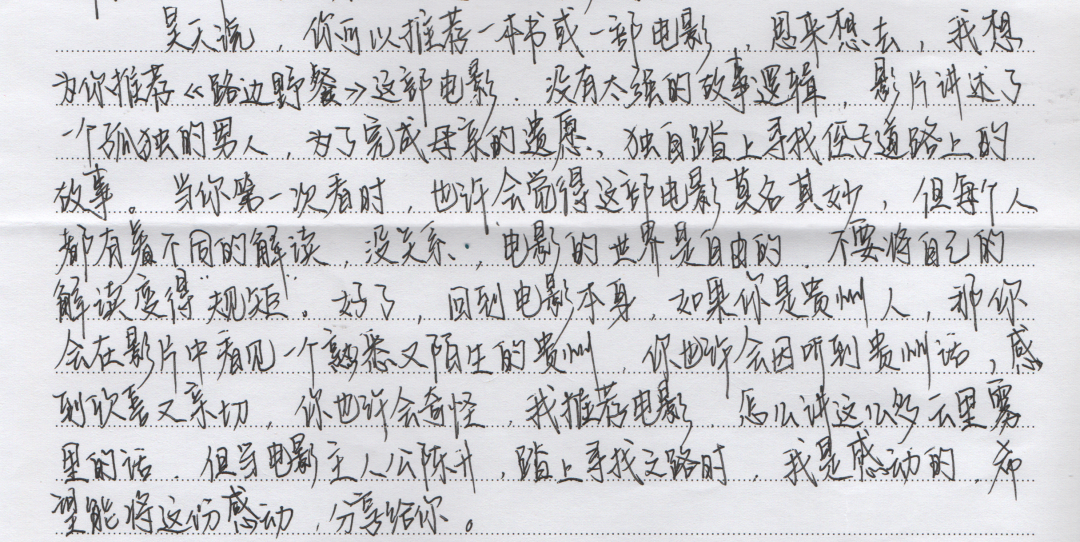 昊天说，你可以推荐一本书或一部电影，思来想去，我想
为你推荐《路边野餐》这部电影．没有太强的故事逻辑，影片讲述了
一个孤独的男人，为了完成母亲的遗愿、独自踏上寻找侄子道路上的
故事。当你第一次看时，也许会觉得这部电影莫名其妙，但每个人
都有着不同的解读，没关系，电影的世界是自由的．不要将自己的
解读变得"规矩"。好了，回到电影本身，如果你是贵州人，那你
会在影片中看见一个熟悉又陌生的贵州，你也许会因听到贵州话，感
到欣喜又亲切，你也许会奇怪，我推荐电影．怎么讲这么多云里雾
里的话．但当电影主人公陈升，踏上寻找之路时．我是感动的．希
望能将这份感动，分享给你。